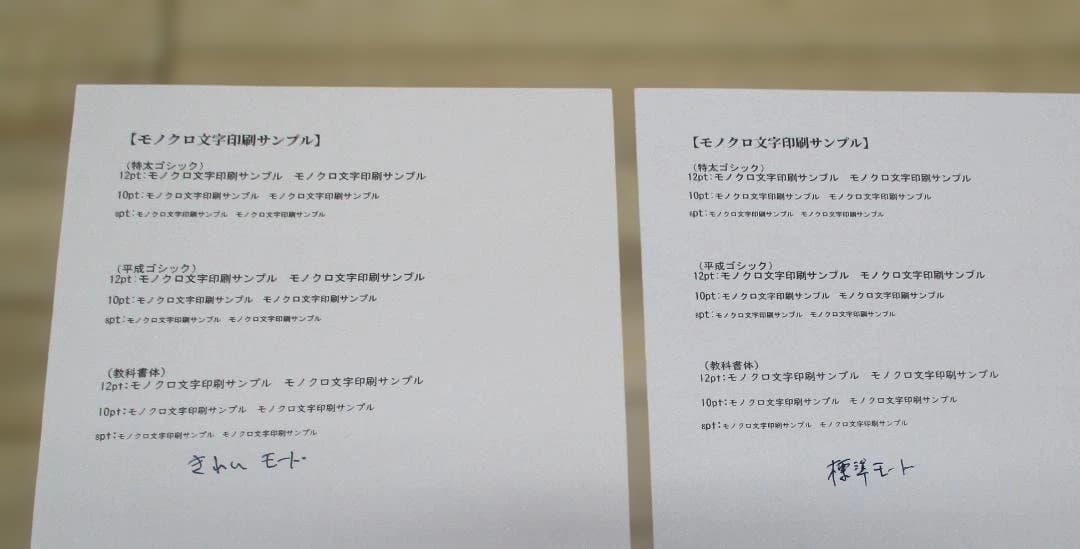 【モノクロ文字印刷サンプル】
(特太ゴシック)
12pt:モノクロ文字印刷サンプル　モノクロ文字印刷サンプル
10pt:モノクロ文字印刷サンプル　モノクロ文字印刷サンプル
8pt:モノクロ文字印刷サンプル　モノクロ文字印刷サンプル
(平成ゴシック)
12pt:モノクロ文字印刷サンプル　モノクロ文字印刷サンプル
10pt:モノクロ文字印刷サンプル　モノクロ文字印刷サンプル
8pt:モノクロ文字印刷サンプル　モノクロ文字印刷サンプル
(教科書体)
12pt:モノクロ文字印刷サンプル　モノクロ文字印刷サンプル
10pt:モノクロ文字印刷サンプル　モノクロ文字印刷サンプル
8pt:モノクロ文字印刷サンプル　モノクロ文字印刷サンプル
きれい モード
【モノクロ文字印刷サンプル】
(特太ゴシック)
12pt:モノクロ文字印刷サンプル　モノクロ文字印刷サンプル
10pt:モノクロ文字印刷サンプル　モノクロ文字印刷サンプル
8pt:モノクロ文字印刷サンプル　モノクロ文字印刷サンプル
(平成ゴシック)
12pt:モノクロ文字印刷サンプル　モノクロ文字印刷サンプル
10pt:モノクロ文字印刷サンプル　モノクロ文字印刷サンプル
8pt:モノクロ文字印刷サンプル　モノクロ文字印刷サンプル
(教科書体)
12pt:モノクロ文字印刷サンプル　モノクロ文字印刷サンプル
10pt:モノクロ文字印刷サンプル　モノクロ文字印刷サンプル
8pt:モノクロ文字印刷サンプル　モノクロ文字印刷サンプル
標準モード